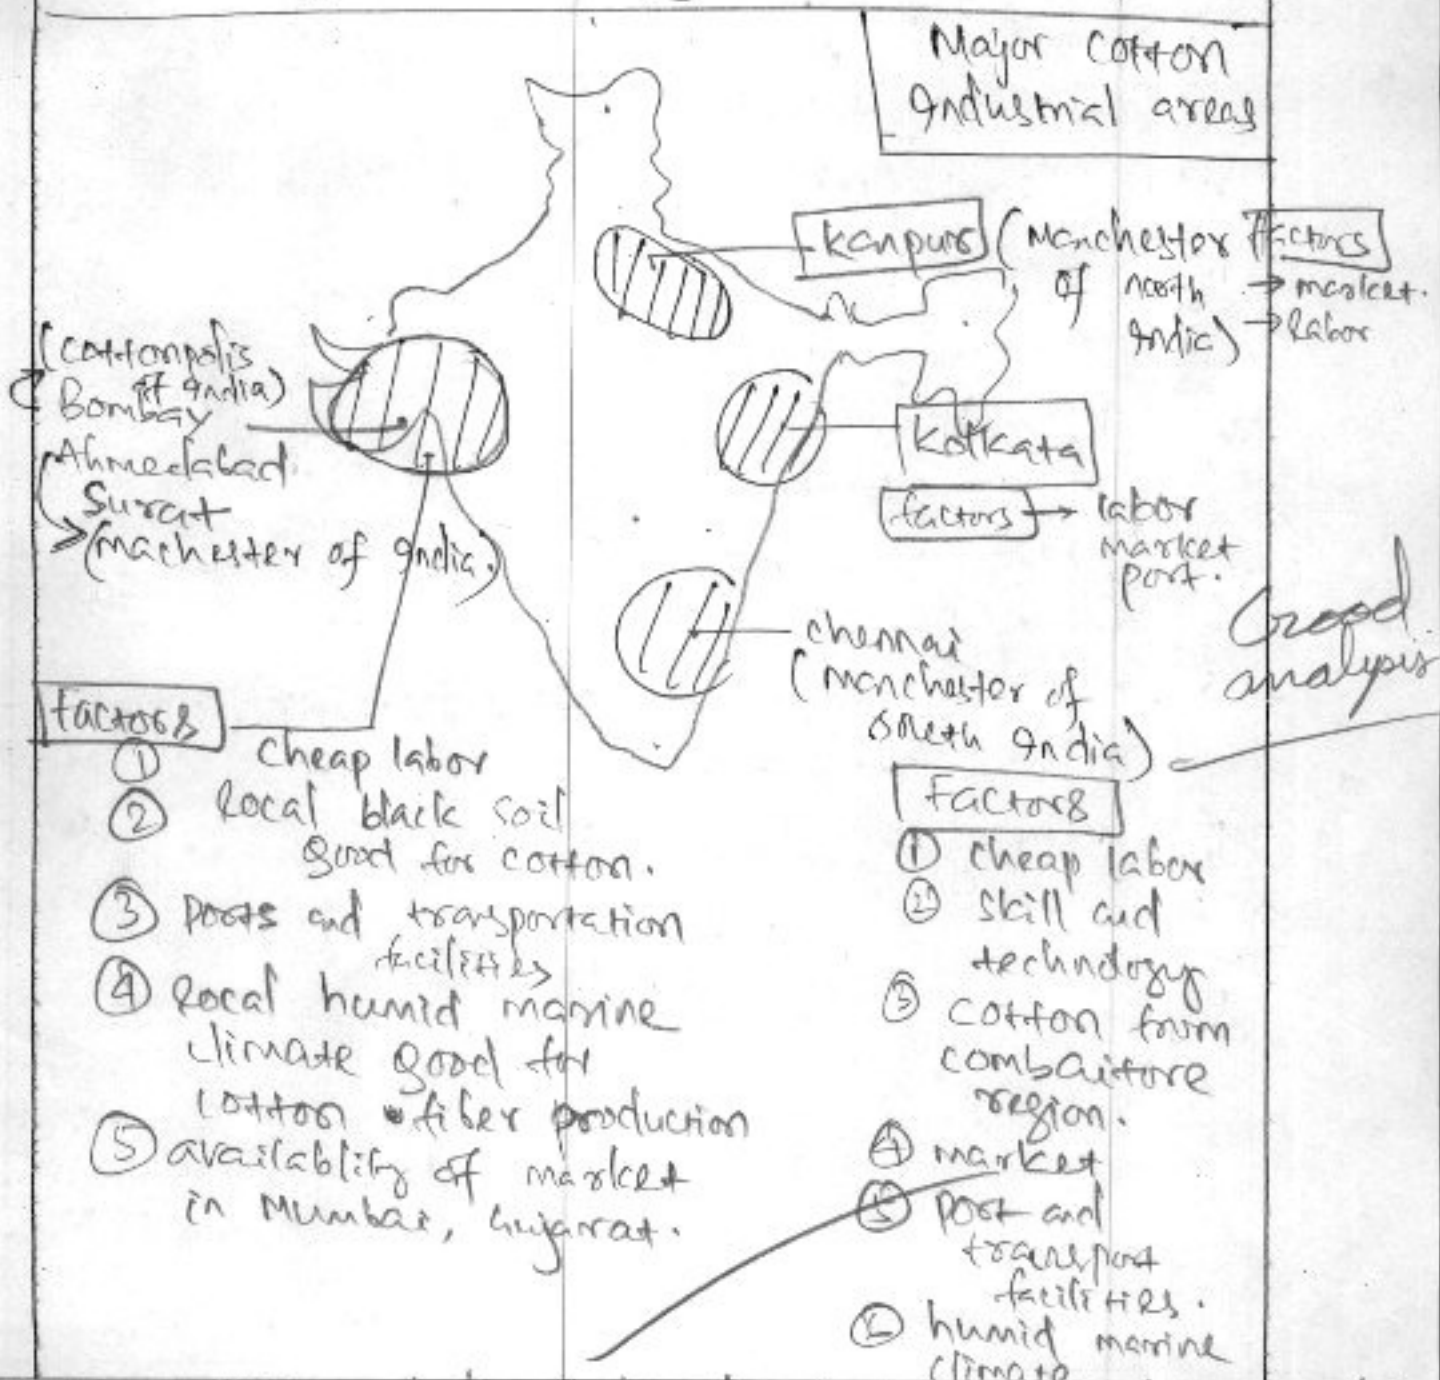 Major Cotton
Industrial areas
Kanpur (Manchester
of north
India)
Factors
→ market.
→ labor
(Cottonpolis
of India)
Bombay
Ahmedabad
Surat
(machester of India.)
Kolkata
factors → labor
market
port.
Good
analysis
chennai
(manchester of
South India)
Factors
① Cheap labor
② local black soil
good for cotton.
③ Ports and transportation
facilities
④ local humid marine
climate good for
cotton fiber production
⑤ availablity of market
in Mumbai, Gujarat.
Factors
① cheap labor
② skill and
technology
③ cotton from
combaitore
region.
④ market
⑤ port and
transport
facilities.
⑥ humid marine
climate